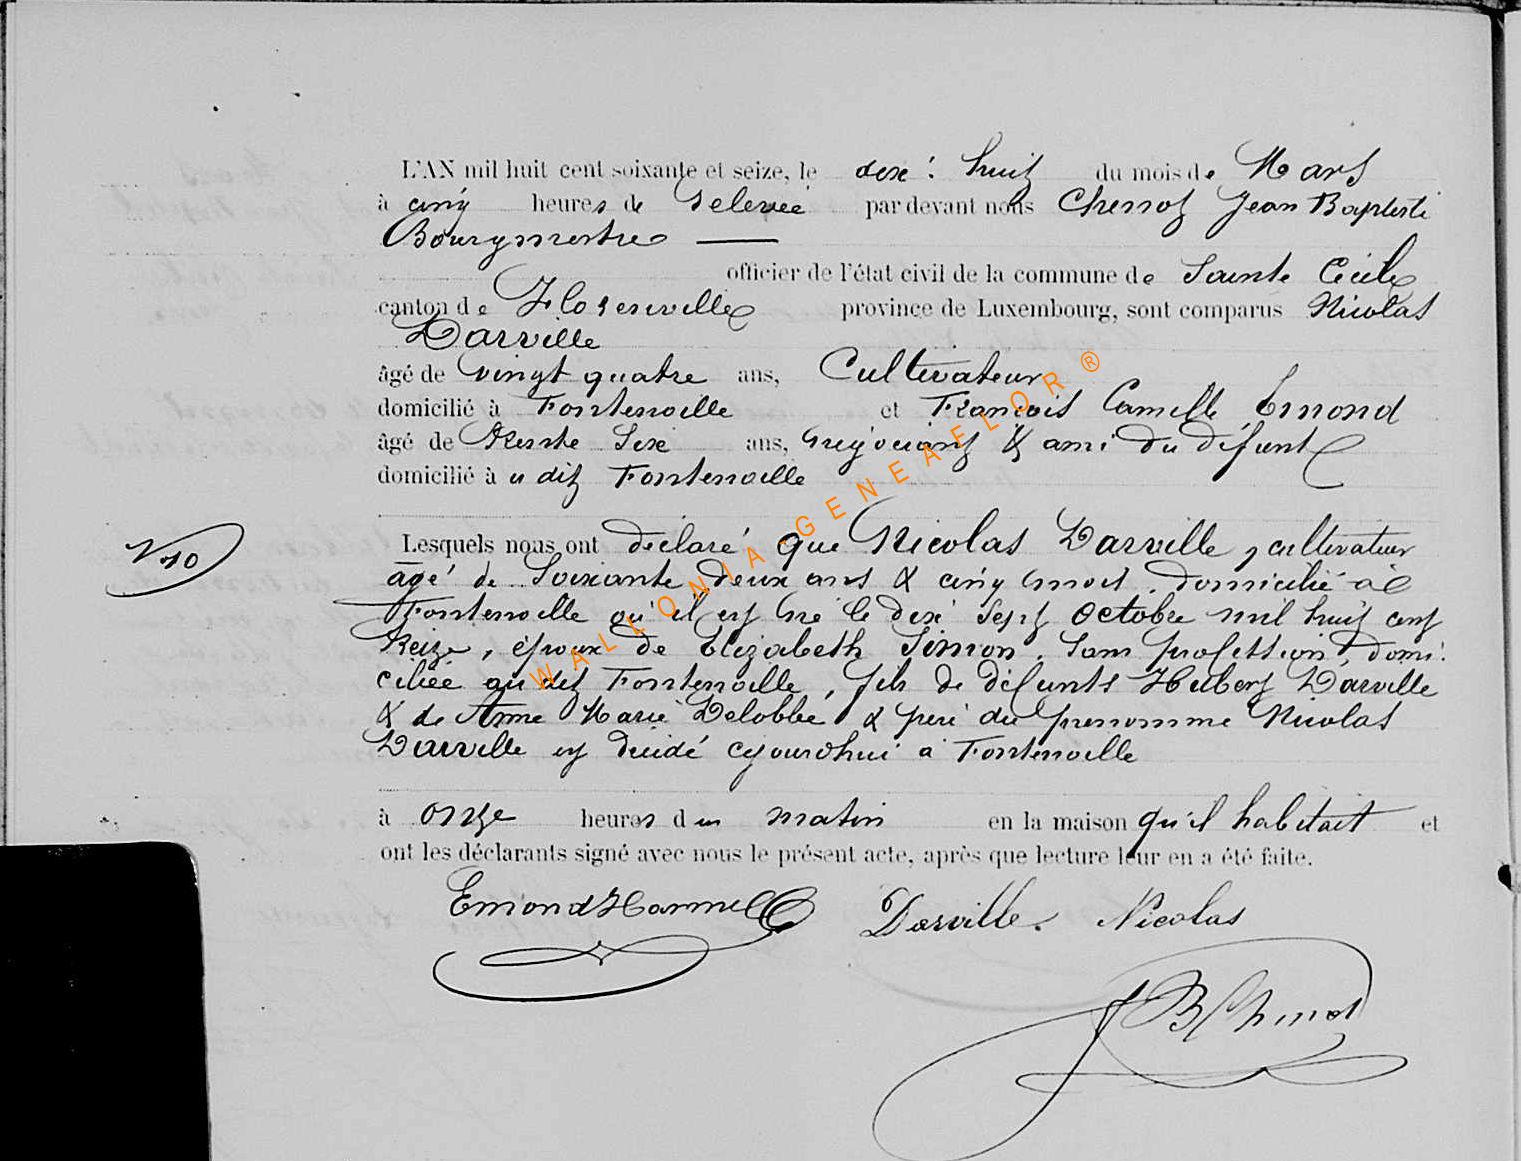 L'AN mil huit cent soixante et seize, le dix-huit du mois de Mars
à cinq heures de relevée par devant nous Chenot Jean Baptiste
Bourgmestre
officier de l'état civil de la commune de Sainte Cécile
canton de Florenville province de Luxembourg, sont comparus Nicolas
Darville
âgé de vingt quatre ans, Cultivateur
domicilié à Fontenoille et François Camille Emond
âgé de trente six ans, négociant & ami du défunt
domicilié à u dit Fontenoille
N 10
Lesquels nous ont déclaré que Nicolas Darville, cultivateur
âgé de soixante deux ans & cinq mois, domicilié à
Fontenoille où il est né le dix sept octobre mil huit cent
treize, époux de Elizabeth Simon, sans profession, domi-
ciliée au dit Fontenoille, fils de défunts Hubert Darville
& de Anne Marie Delobbe & père du prénommé Nicolas
Darville est décidé cejourdhui à Fontenoille
à onze heures du matin en la maison qu'il habitait et
ont les déclarants signé avec nous le présent acte, après que lecture leur en a été faite.
Emond Darville Nicolas
JB Chenot
WALLONIA-GENEAFLOR ®